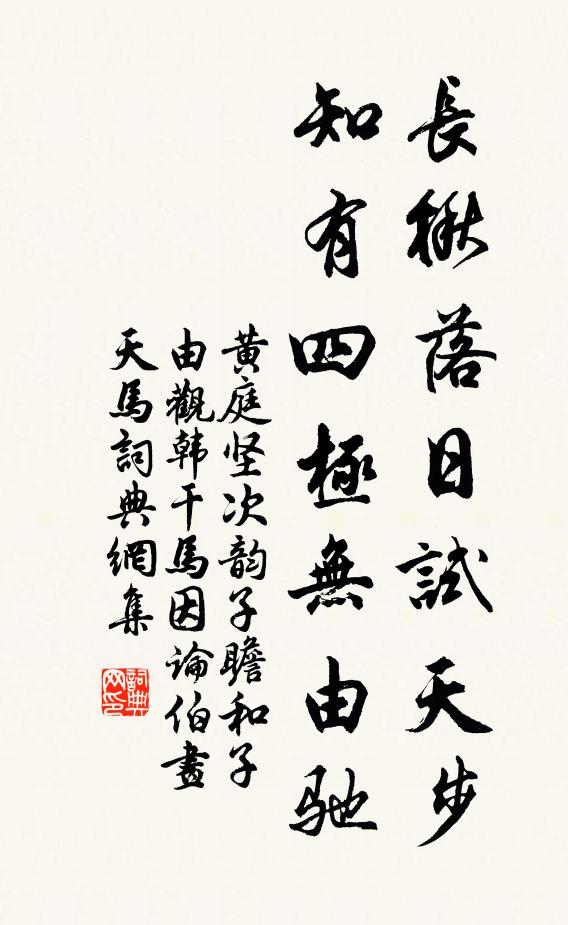 長楸落日試天步
知有四極無由馳
黄庭坚次韵子瞻和子
由觀韩干馬因論伯畫
天馬詞典網集
詞典网印